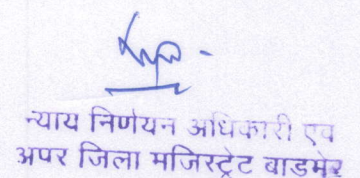 न्याय निर्णयन अधिकारी एवं
अपर जिला मजिस्ट्रेट बाडमेर